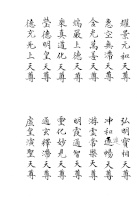 耀景元和天尊
惠空無希天尊
金光萬善天尊
端嚴正德天尊
眾真道化天尊
瑩德明皇天尊
德光先上天尊
弘明寶相天尊
沖和通暢天尊
游雲常樂天尊
明霞通智天尊
靈化妙見天尊
通玄輝濟天尊
虛皇演聖天尊